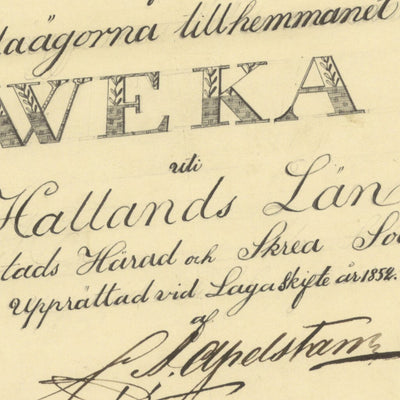 daägorna tillhemmanet
WEKA
uti
Hallands Län
stads Härad och Skrea So
Upprättad vid Laga Skifte år 1852.
af
Apelstam